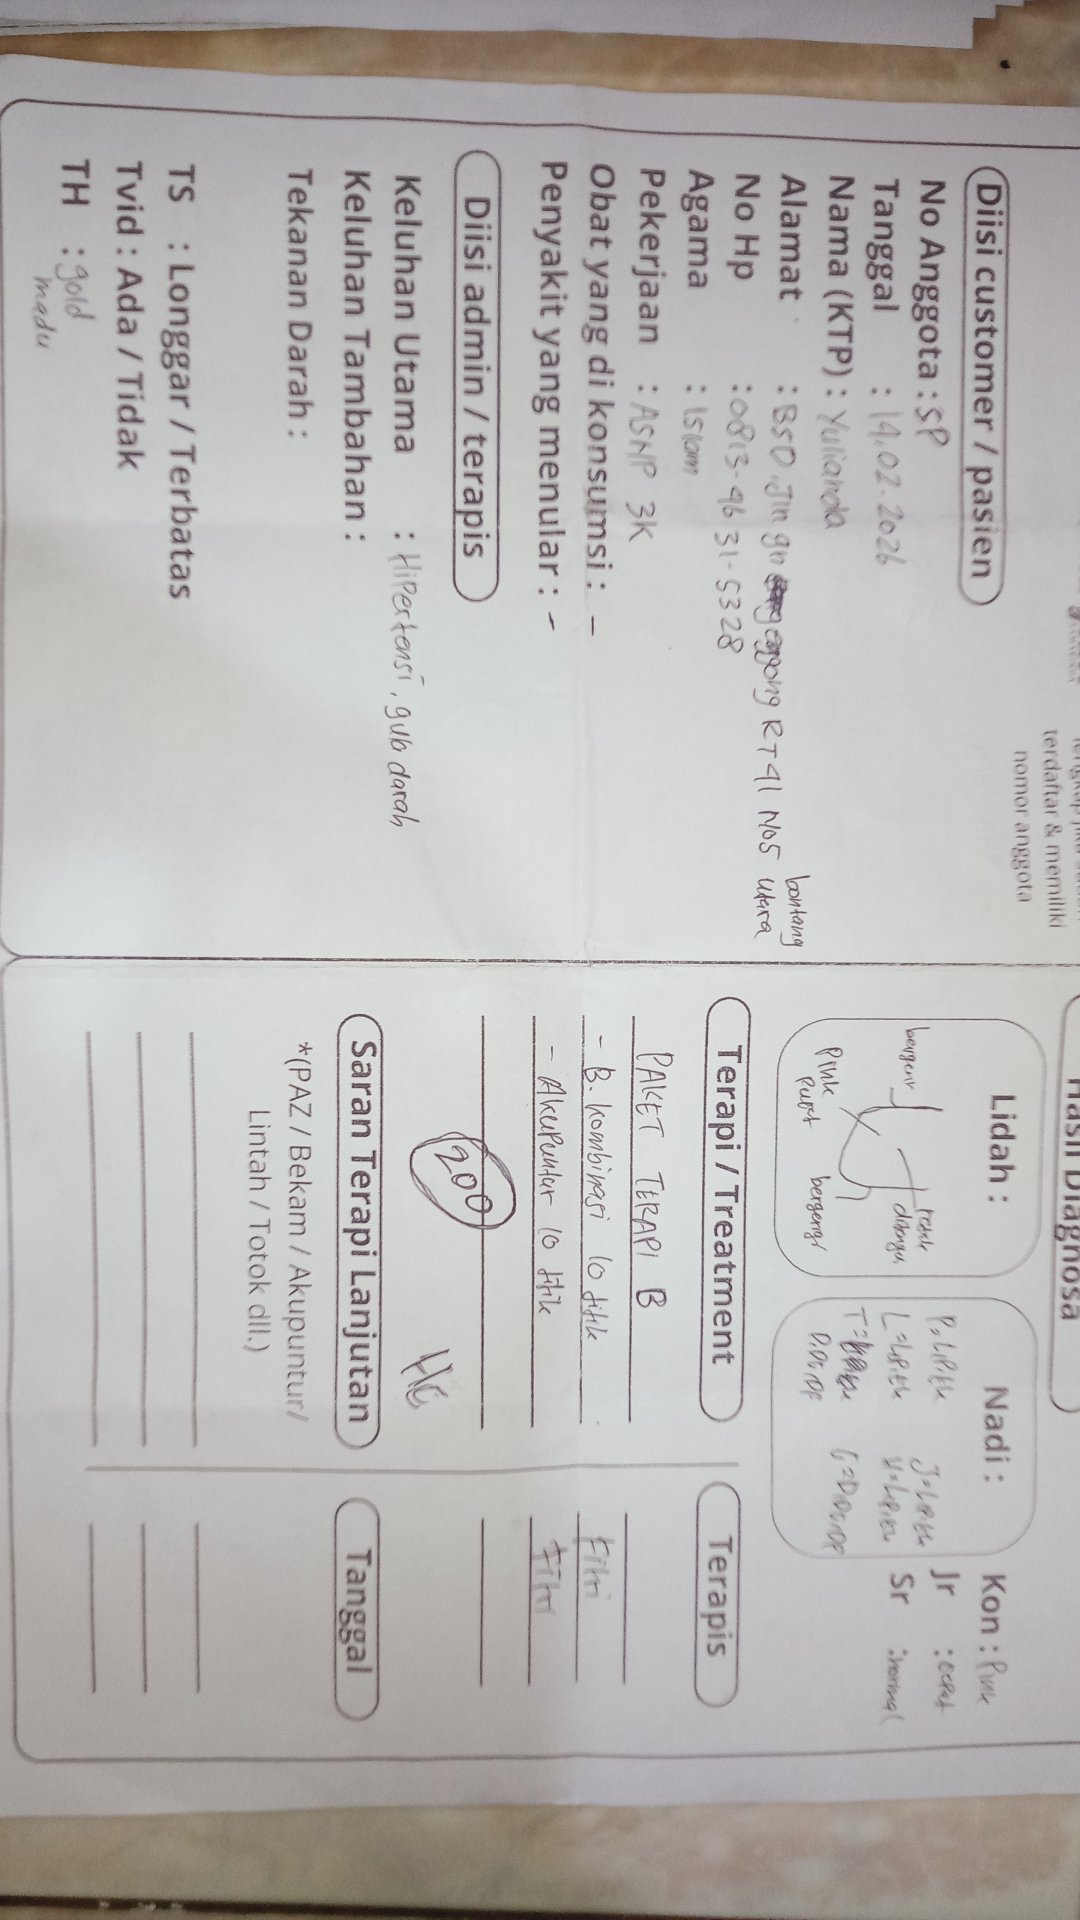 terdaftar & memiliki
nomor anggota
Diisi customer / pasien
No Anggota : SP
Tanggal : 14.02.2026
Nama (KTP) : Yulianda
Alamat : BSD. Jln gn RT 41 No5 bontang utara
No Hp : 0813-4631-5328
Agama : Islam
Pekerjaan : 3K
Obat yang di konsumsi : -
Penyakit yang menular : -
Diisi admin / terapis
Keluhan Utama : Hipertensi, gub darah
Keluhan Tambahan :
Tekanan Darah :
TS : Longgar / Terbatas
Tvid : Ada / Tidak
TH : gold
madu
Hasil Diagnosa
Lidah :
bergerigi
Pink
Nadi :
Kon : Pink
Jr : cepat
Sr : normal
Terapi / Treatment
Terapis
PAKET TERAPI B
- B. kombinasi 10 titik
Fitri
- Akupuntur 10 titik
Fitri
200
Saran Terapi Lanjutan
Tanggal
*(PAZ / Bekam / Akupuntur/
Lintah / Totok dll.)